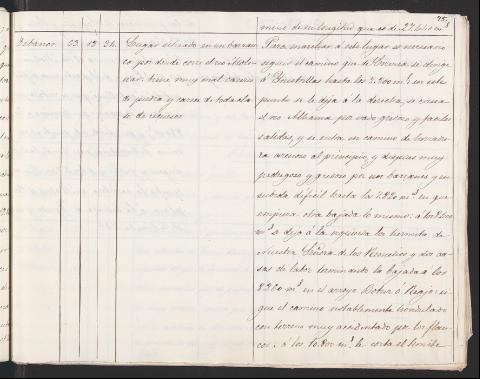 75.
mino de su longitud que es de 27.640 m.s
Zebanos 63. 12. 34. Lugar situado en un barran-
co por donde corre el rio
tiene muy mal caserio
de piedra y carece de toda cla-
se de recursos
Para marchar á este lugar es necesario
seguir el camino que de Cervera se dirige
á Ynestrillas hasta los 2.300 m.s; en este
punto se le deja á la derecha, se cruza
el rio Alhama por vado guijoso y faciles
salidas, y se entra en camino de herradu-
ra arenoso al principio, y despues muy
pedregoso y guijoso por sus barrancos y en
subida dificil hasta los 7.220 m.s en que
empieza otra bajada lo mismo: á los
m.s se deja á la izquierda la hermita de
Nuestra Señora de los Remedios y dos ca-
sas de labor terminando la bajada á los
8260 m.s en el arroyo ó si-
gue el camino notablemente hondulado
con terreno muy accidentado por los flan-
cos: á los 10.800 m.s le corta el limite